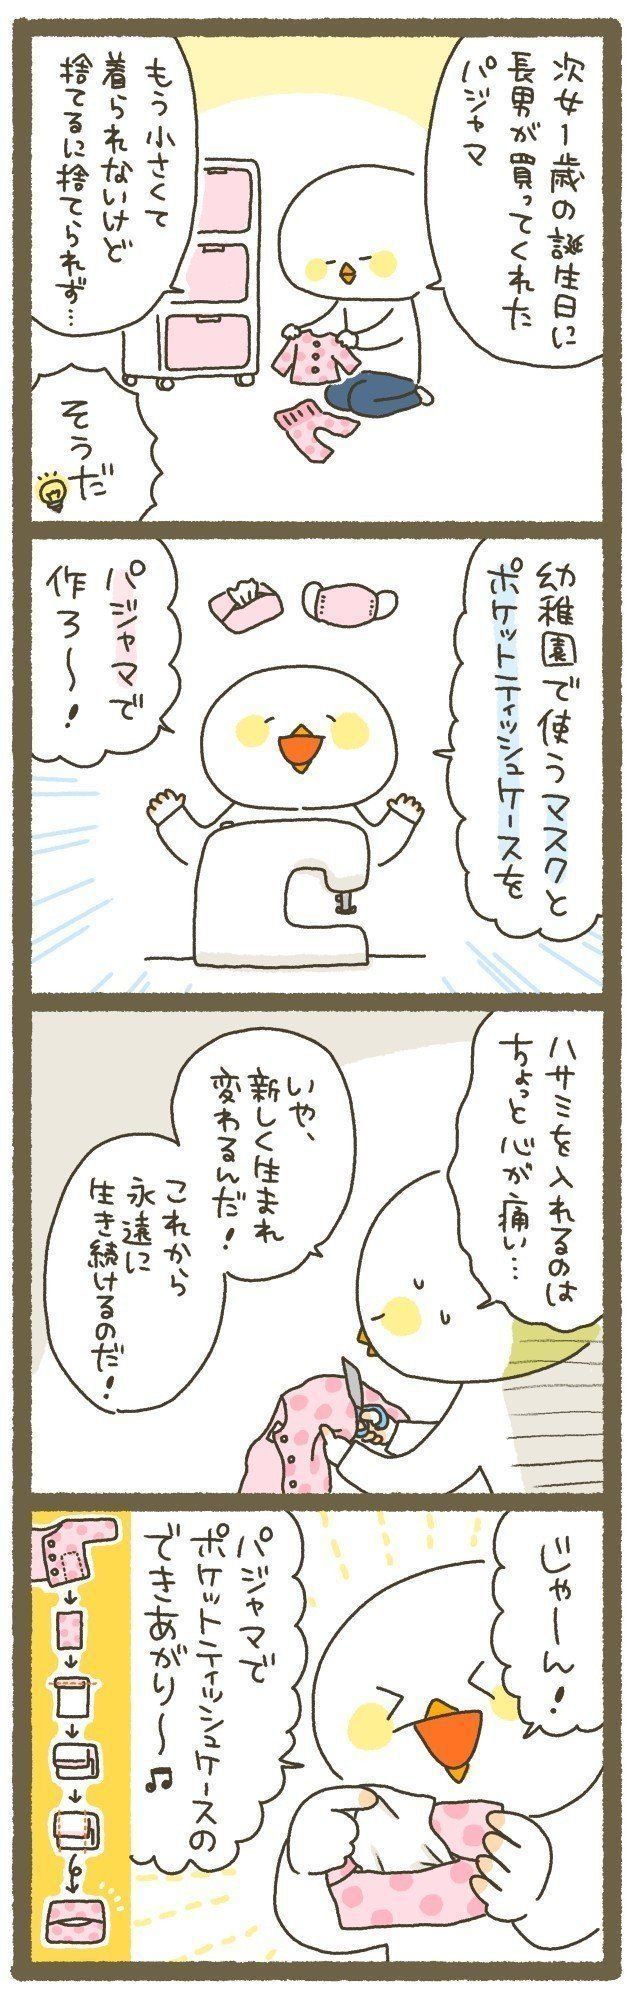 次女1歳の誕生日に
長男が買ってくれた
パジャマ
もう小さくて
着られないけど
捨てるに捨てられず…
そうだ
幼稚園で使うマスクと
ポケットティッシュケースを
パジャマで
作ろ〜！
ハサミを入れるのは
ちょっと心が痛い…
いや、
新しく生まれ
変わるんだ！
これから
永遠に
生き続けるのだ！
じゃーん！
パジャマで
ポケットティッシュケースの
できあがり〜♫